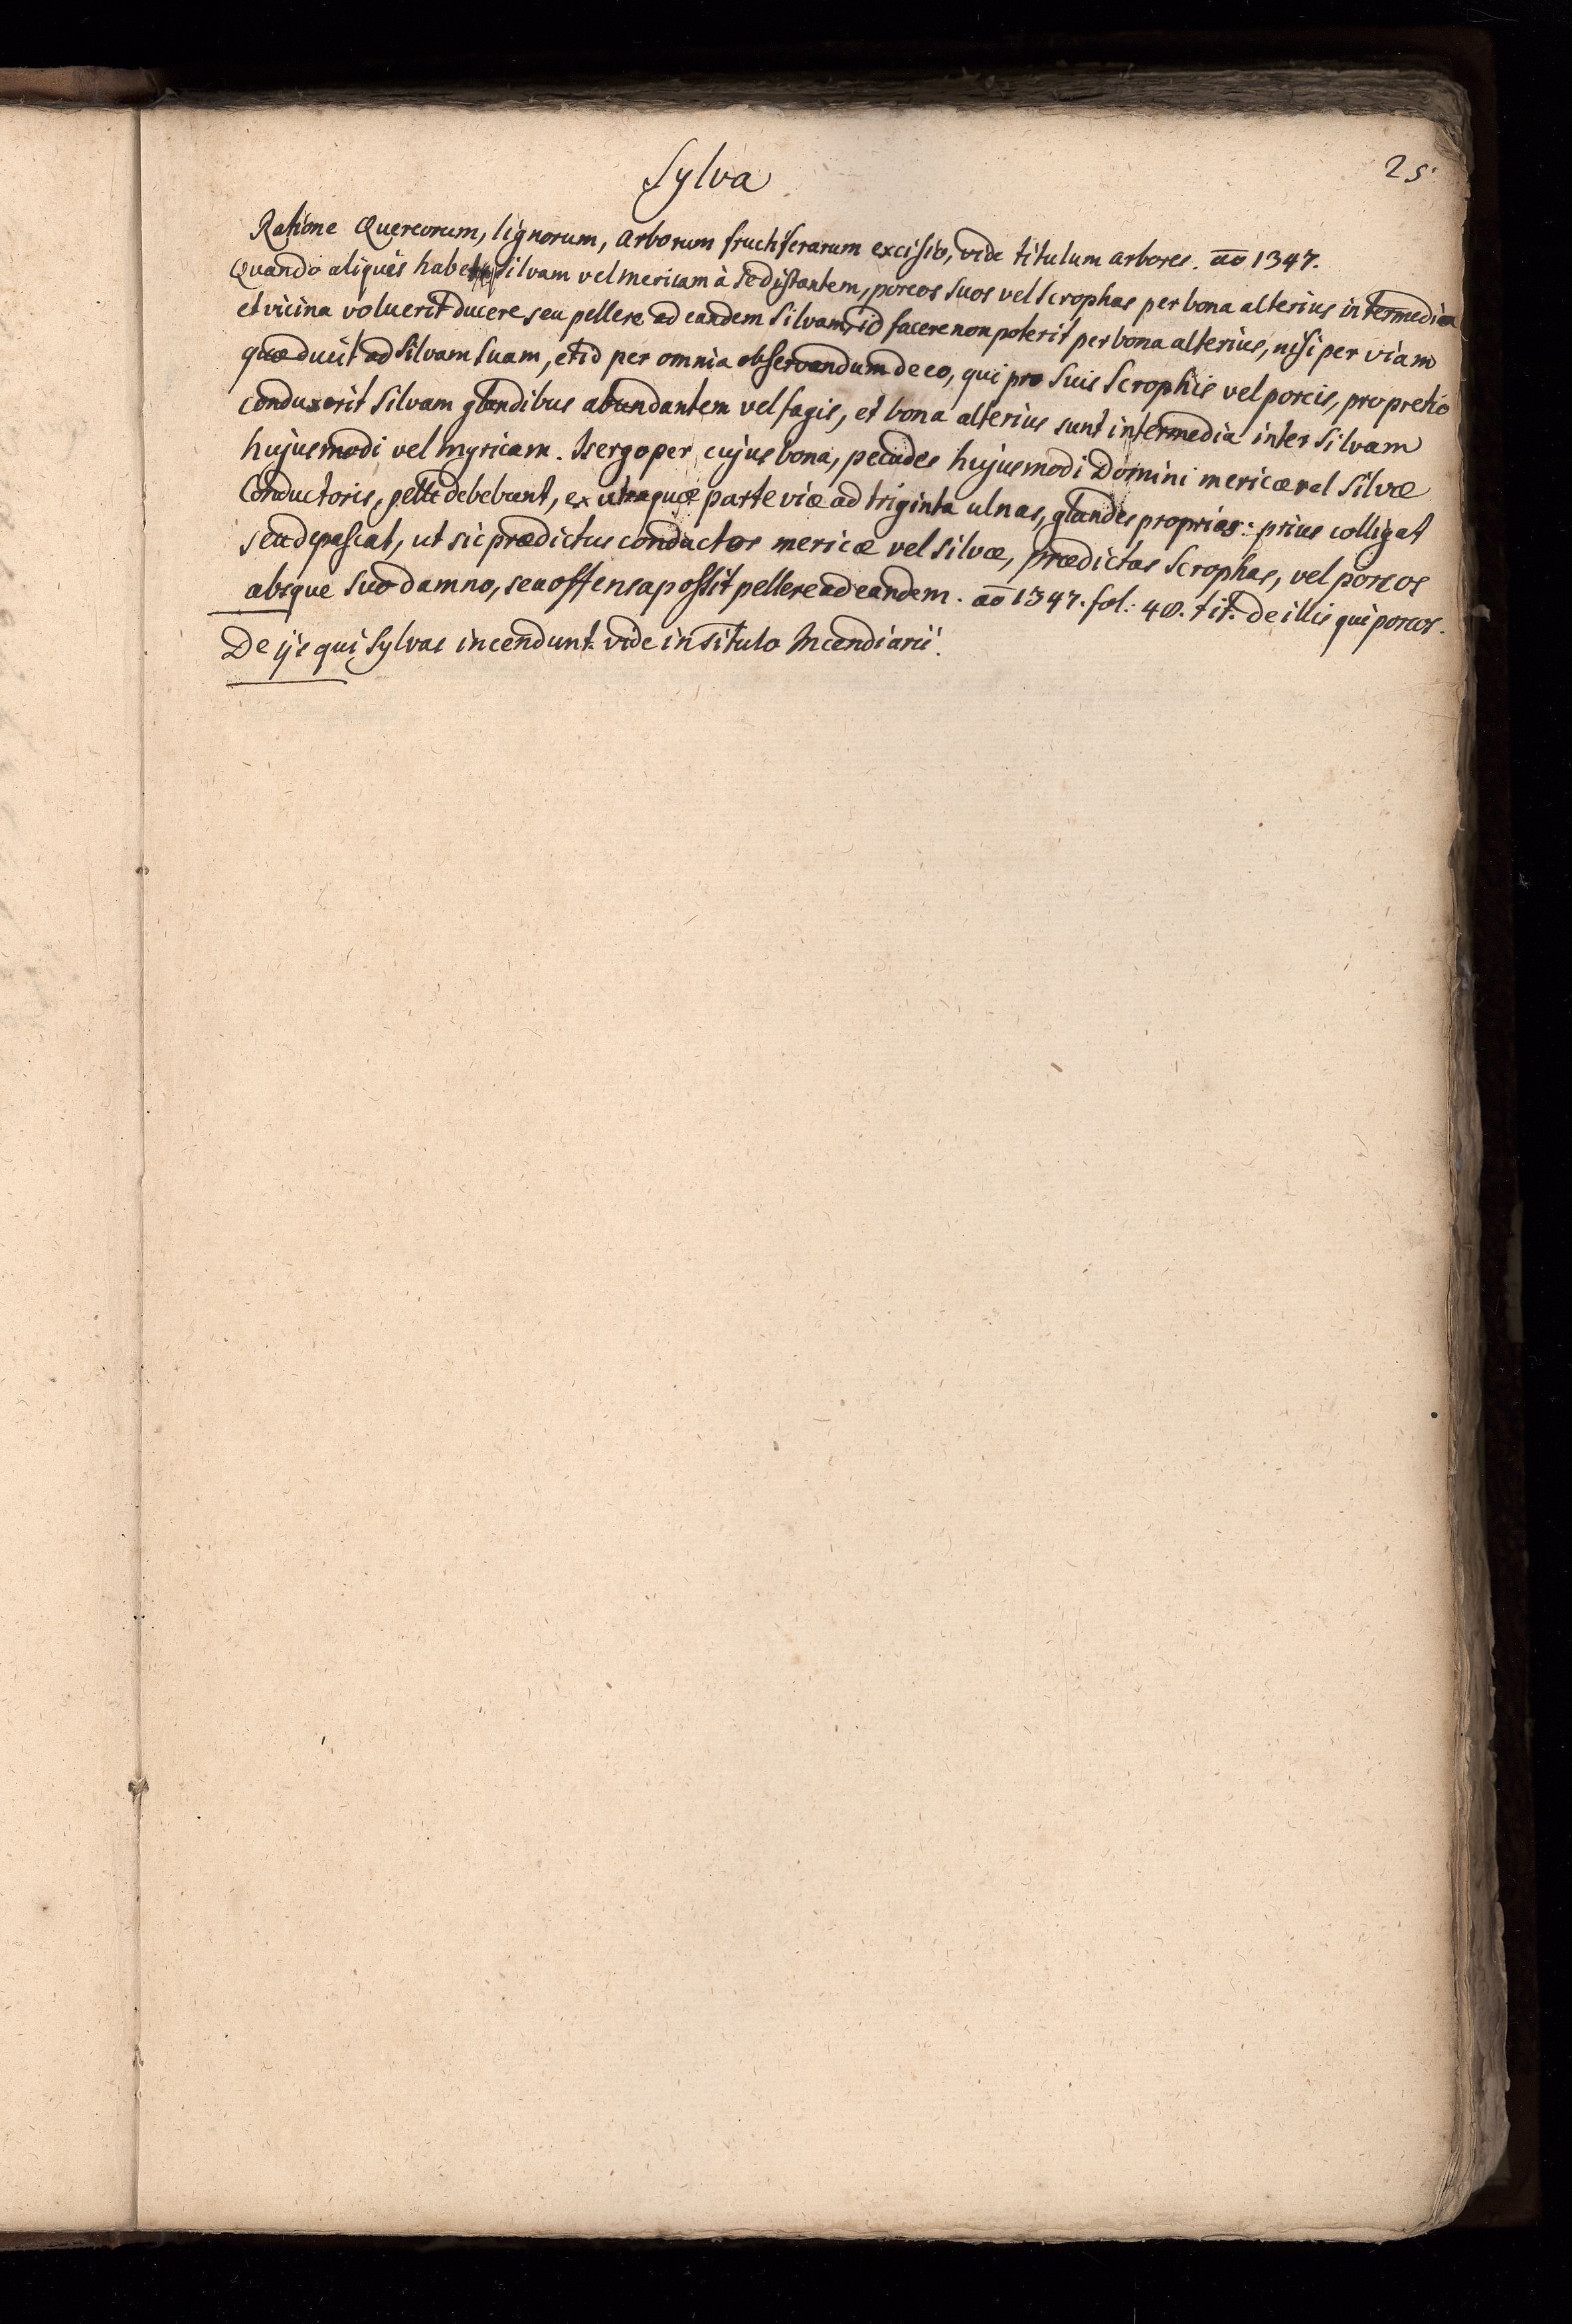 Sylva
25
Ratione Quercorum, lignorum, arborum fructiferarum excisio, vide titulum arbores. ao 1347.
Quando aliquis habet silvam vel mericam à se distantem, porcos suos vel scrophas per bona alterius intermedia
et vicina voluerit ducere seu pellere ad eandem silvam, id facere non poterit per bona alterius, nisi per viam
quæ ducit ad silvam suam, et id per omnia observandum de eo, qui pro suis scrophis vel porcis, pro pretio
conduxerit silvam glandibus abundantem vel fagis, et bona alterius sunt intermedia inter silvam
hujusmodi vel myricam. Is ergo per cujus bona, pecudes hujusmodi Domini mericæ vel silvæ
Conductoris, pelli debebunt, ex utraquæ parte viæ ad triginta ulnas, glandes proprias: prius colligat
seu depascat, ut sic prædictus conductor mericæ vel silvæ, prædictas scrophas, vel porcos
absque suo damno, seu offensa possit pellere ad eandem. ao 1347. fol: 40. tit. de illis qui porcos.
De ijs qui sylvas incendunt vide in titulo Incendiarii.